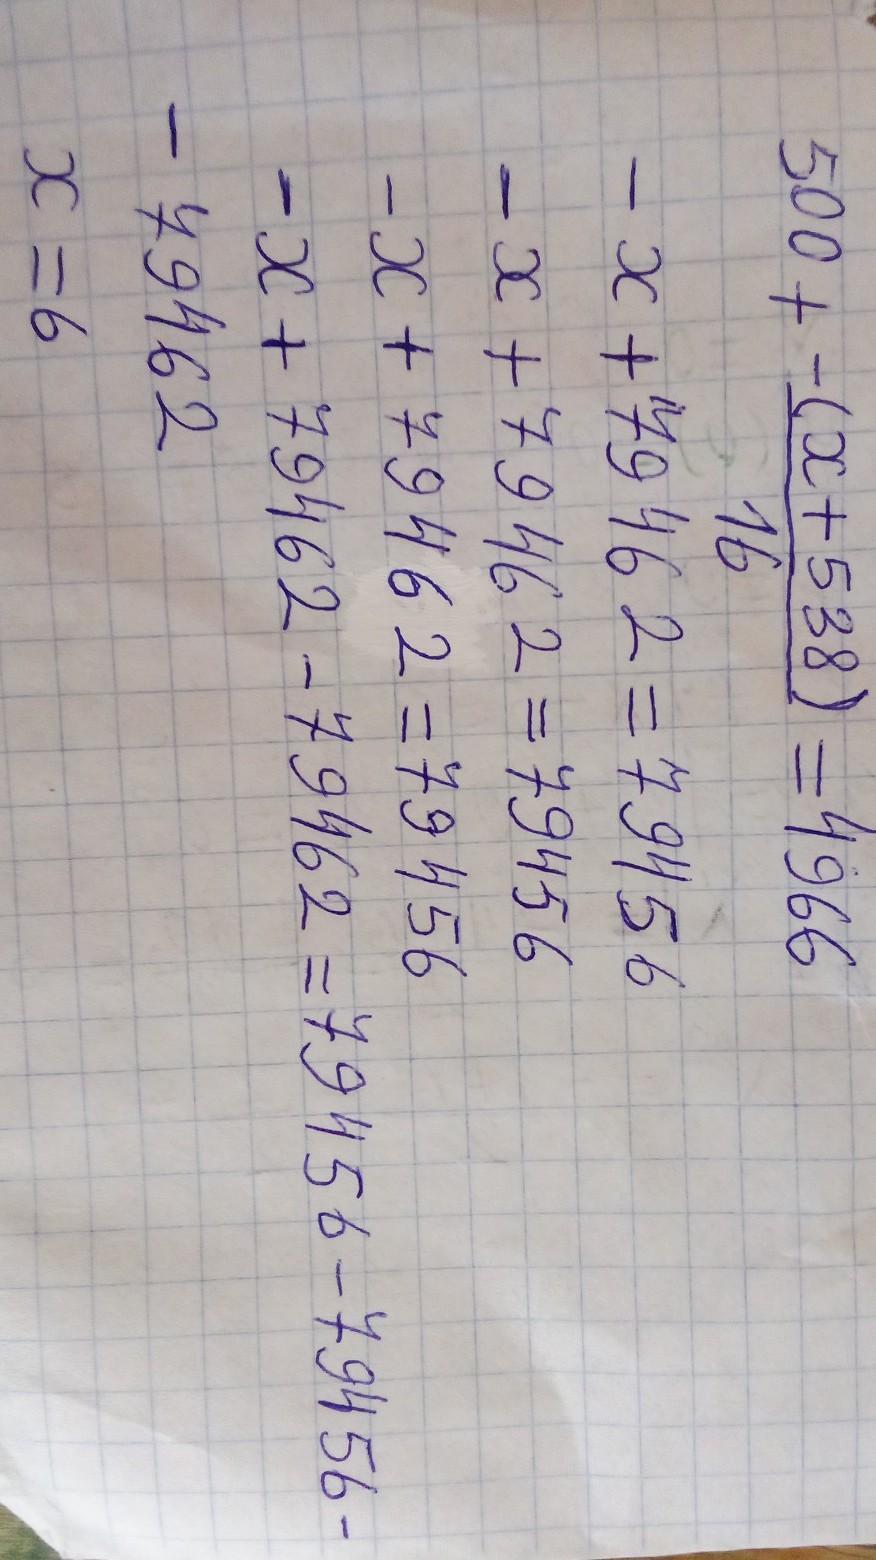 500 + -(x+538)/16 = 4966
-x + 79462 = 79456
-x + 79462 = 79456
-x + 79462 = 79456
-x + 79462 - 79462 = 79456 - 79456 -
- 79462
x = 6